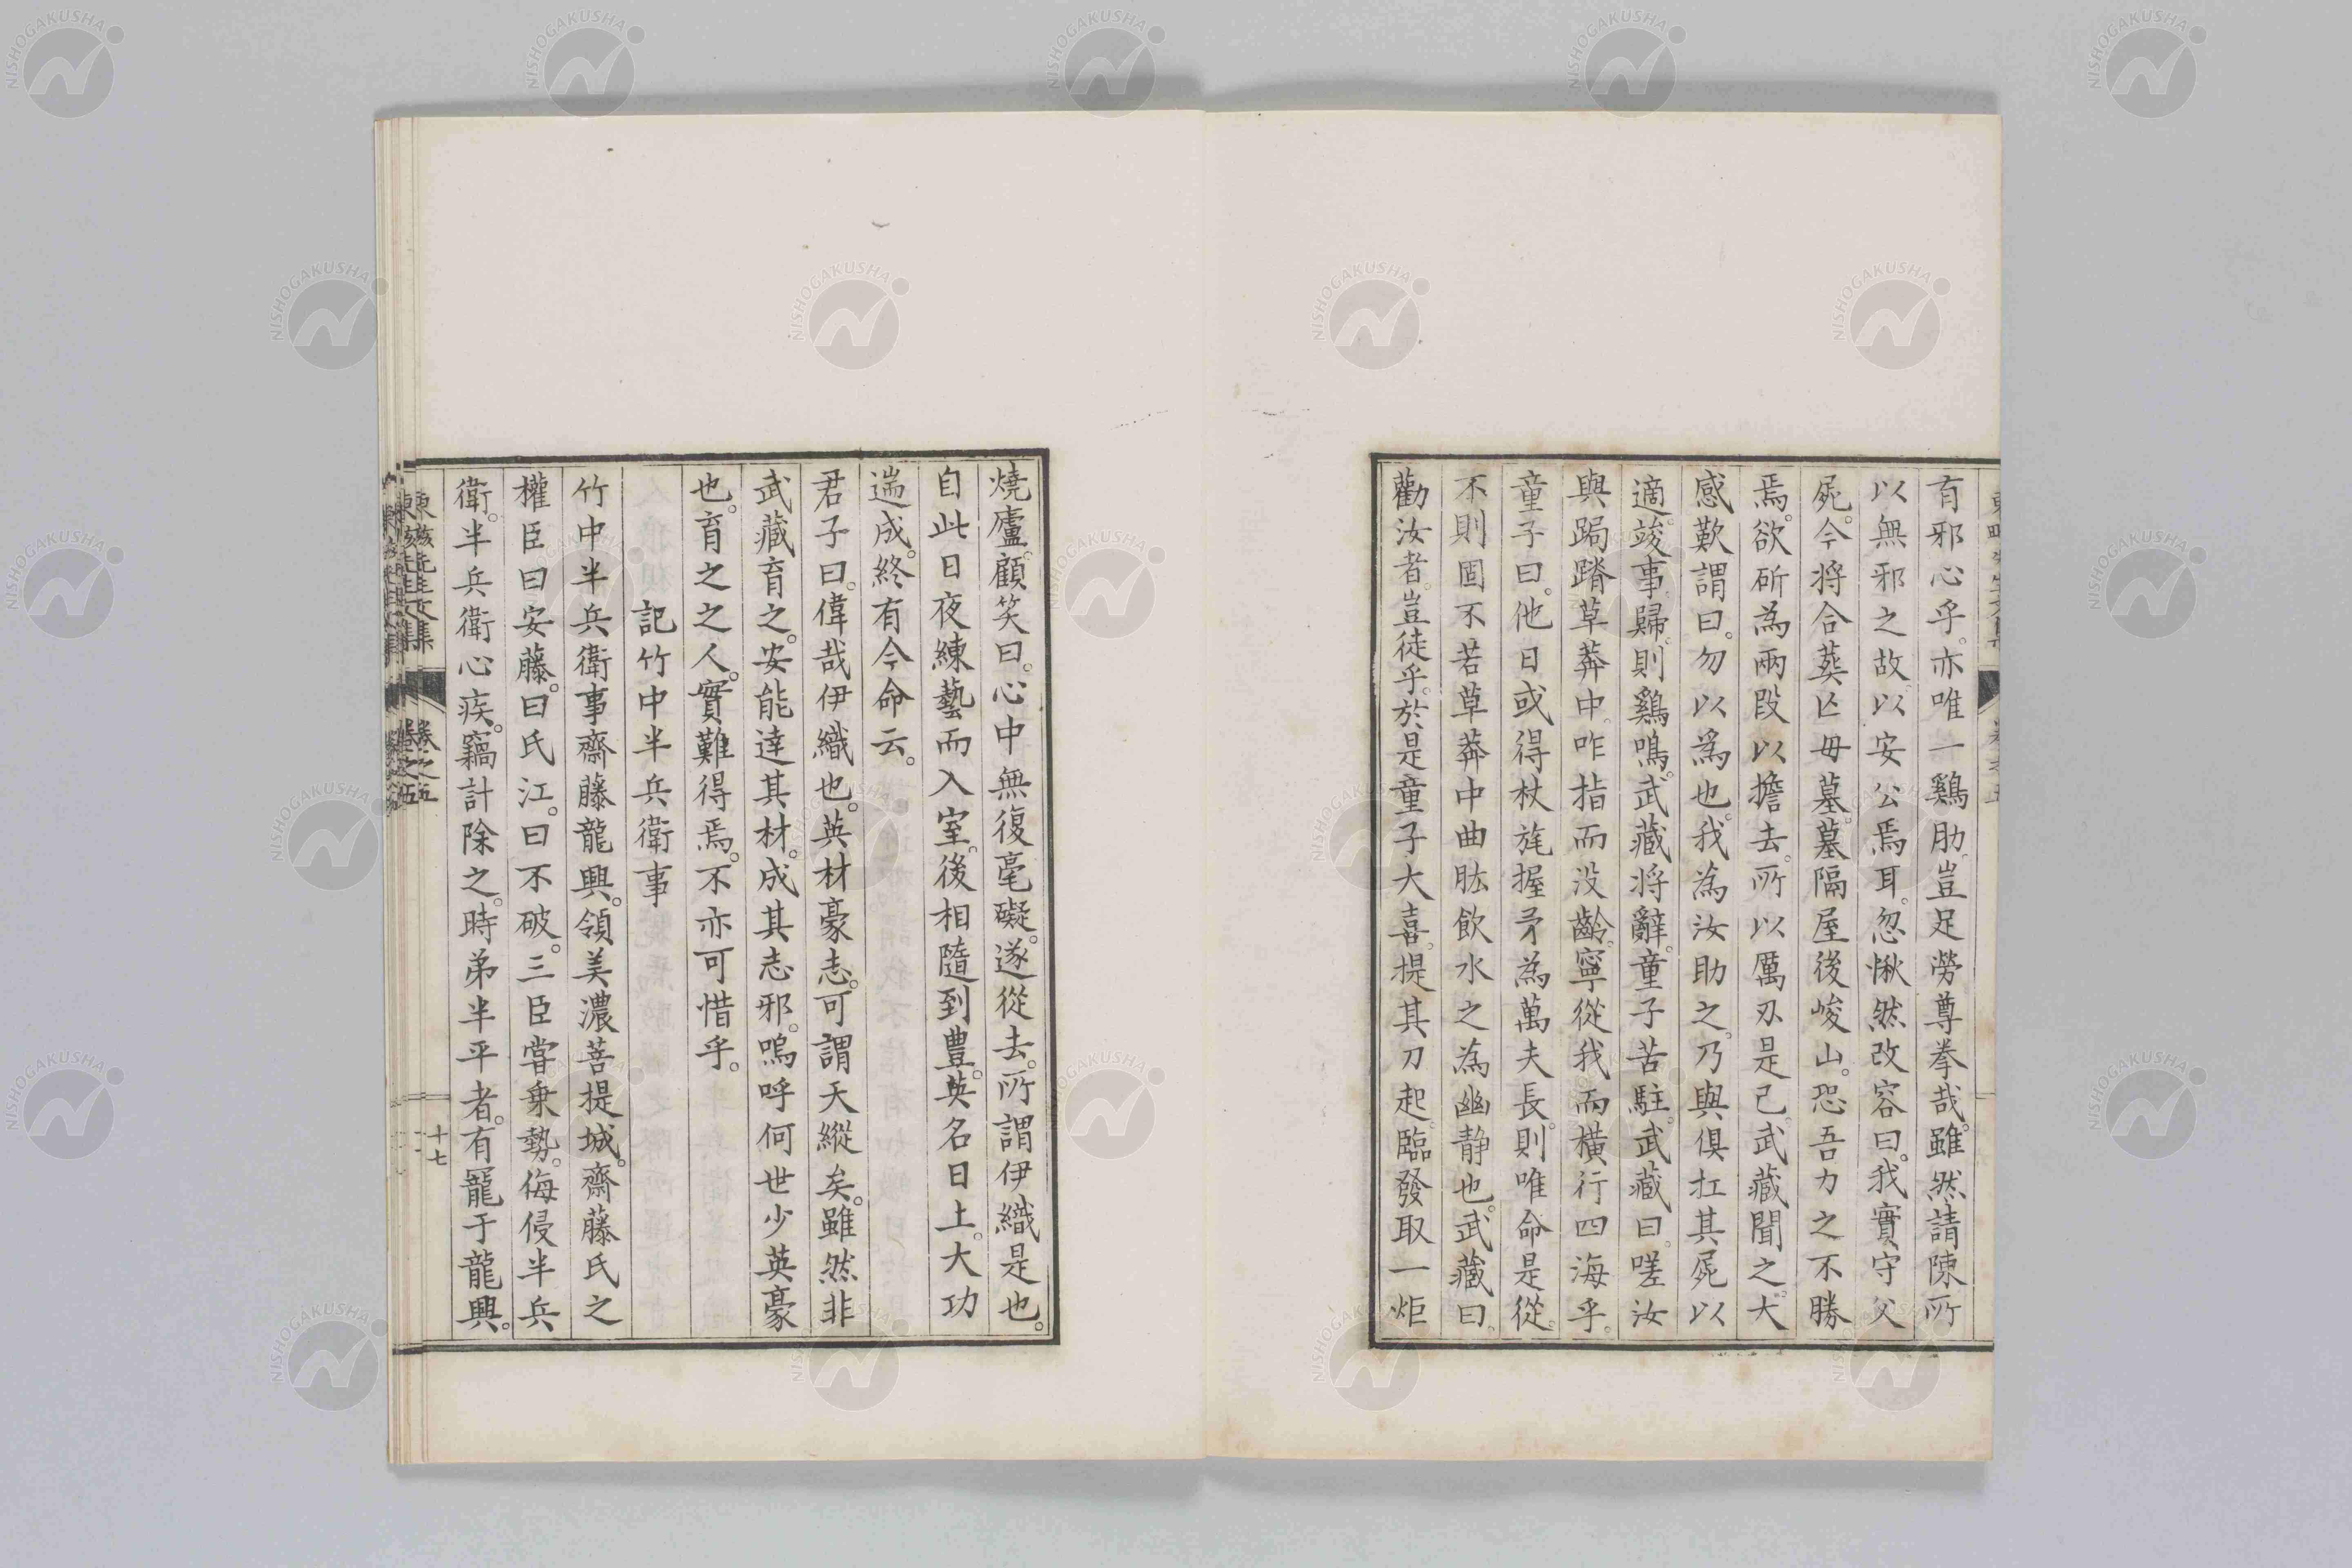 有邪心乎。亦唯一鷄肋。豈足勞尊拳哉。雖然請陳所
以無邪之故。以安公焉耳。忽愀然改容曰。我實守父
屍。今将合葬亡毋墓。墓隔屋後峻山。恐吾力之不勝
焉。欲斫為兩段以擔去。所以厲刃是已。武藏聞之。大
感歎謂曰。勿以為也。我為汝助之。乃與俱扛其屍以
適。竣事歸。則鷄鳴。武藏将辭。童子苦駐。武藏曰。嗟汝
與跼蹐草莽中。咋指而没齡。寧從我而橫行四海乎。
童子曰。他日或得杖旄握矛為萬夫長。則唯命是從。
不則固不若草莽中曲肱飲水之為幽静也。武藏曰。
勸汝者。豈徒乎。於是童子大喜。提其刀起。臨發取一炬
燒廬。顧笑曰。心中無復毫礙。遂從去。所謂伊織是也。
自此日夜練藝而入室。後相隨到豊。英名日上。大功
遄成。終有今命云。
君子曰。偉哉伊織也。英材豪志。可謂天縱矣。雖然非
武藏育之。安能達其材。成其志邪。嗚呼何世少英豪
也。育之之人。實難得焉。不亦可惜乎。
記竹中半兵衛事
竹中半兵衛事齋藤龍興。領美濃菩提城。齋藤氏之
權臣曰安藤。曰氏江。曰不破。三臣甞乗勢。侮侵半兵
衛。半兵衛心疾。竊計除之。時弟半平者。有寵于龍興。
卷之五
十七
NISHOGAKUSHA